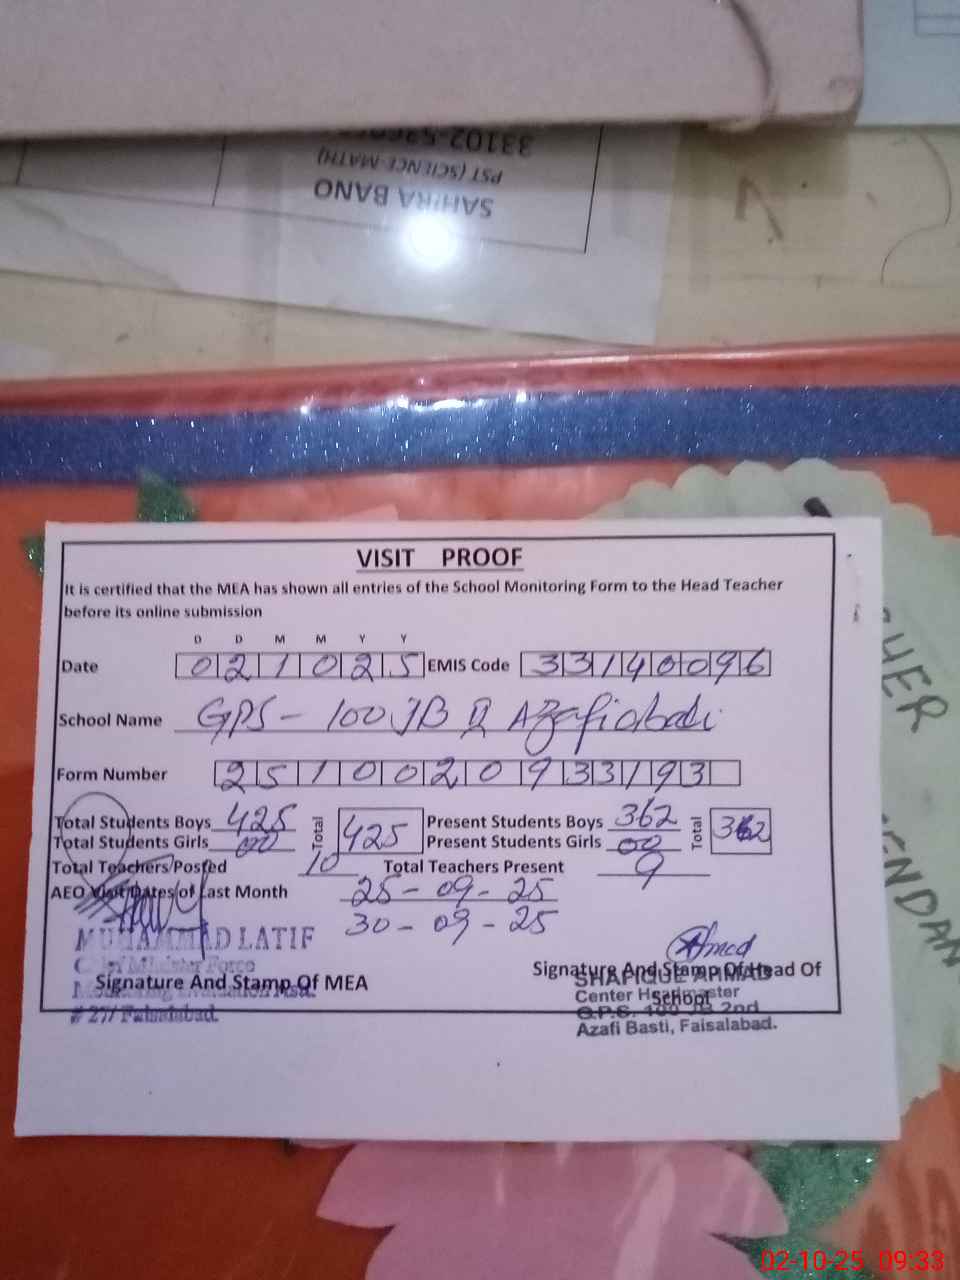 PST (SCIENCE-MATH)
SAHIRA BANO
VISIT PROOF
It is certified that the MEA has shown all entries of the School Monitoring Form to the Head Teacher
before its online submission
D D M M Y Y
Date 0 2 1 0 2 5 EMIS Code 3 3 1 4 0 0 9 6
School Name GPS - 100 JB
Form Number 2 5 1 0 0 2 0 9 3 3 1 9 3
Total Students Boys 425 Total 425 Present Students Boys 362 Total 362
Total Students Girls 00 Present Students Girls 00
Total Teachers Posted 10 Total Teachers Present 9
AEO Visit Dates of Last Month 25-09-25
30-09-25
MUHAMMAD LATIF
Chief Minister Force
# 27/ Faisalabad.
Signature And Stamp Of MEA
Ahmed
Signature And Stamp Of Head Of
School
SHAFIQUE AHMAD
Center Headmaster
G.P.S. 100 JB 2nd
Azafi Basti, Faisalabad.
02-10-25 09:33